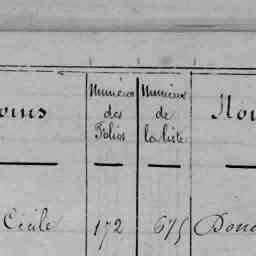 Numéros
des
Folios
Numéros
de
la liste
Cécile 172 675